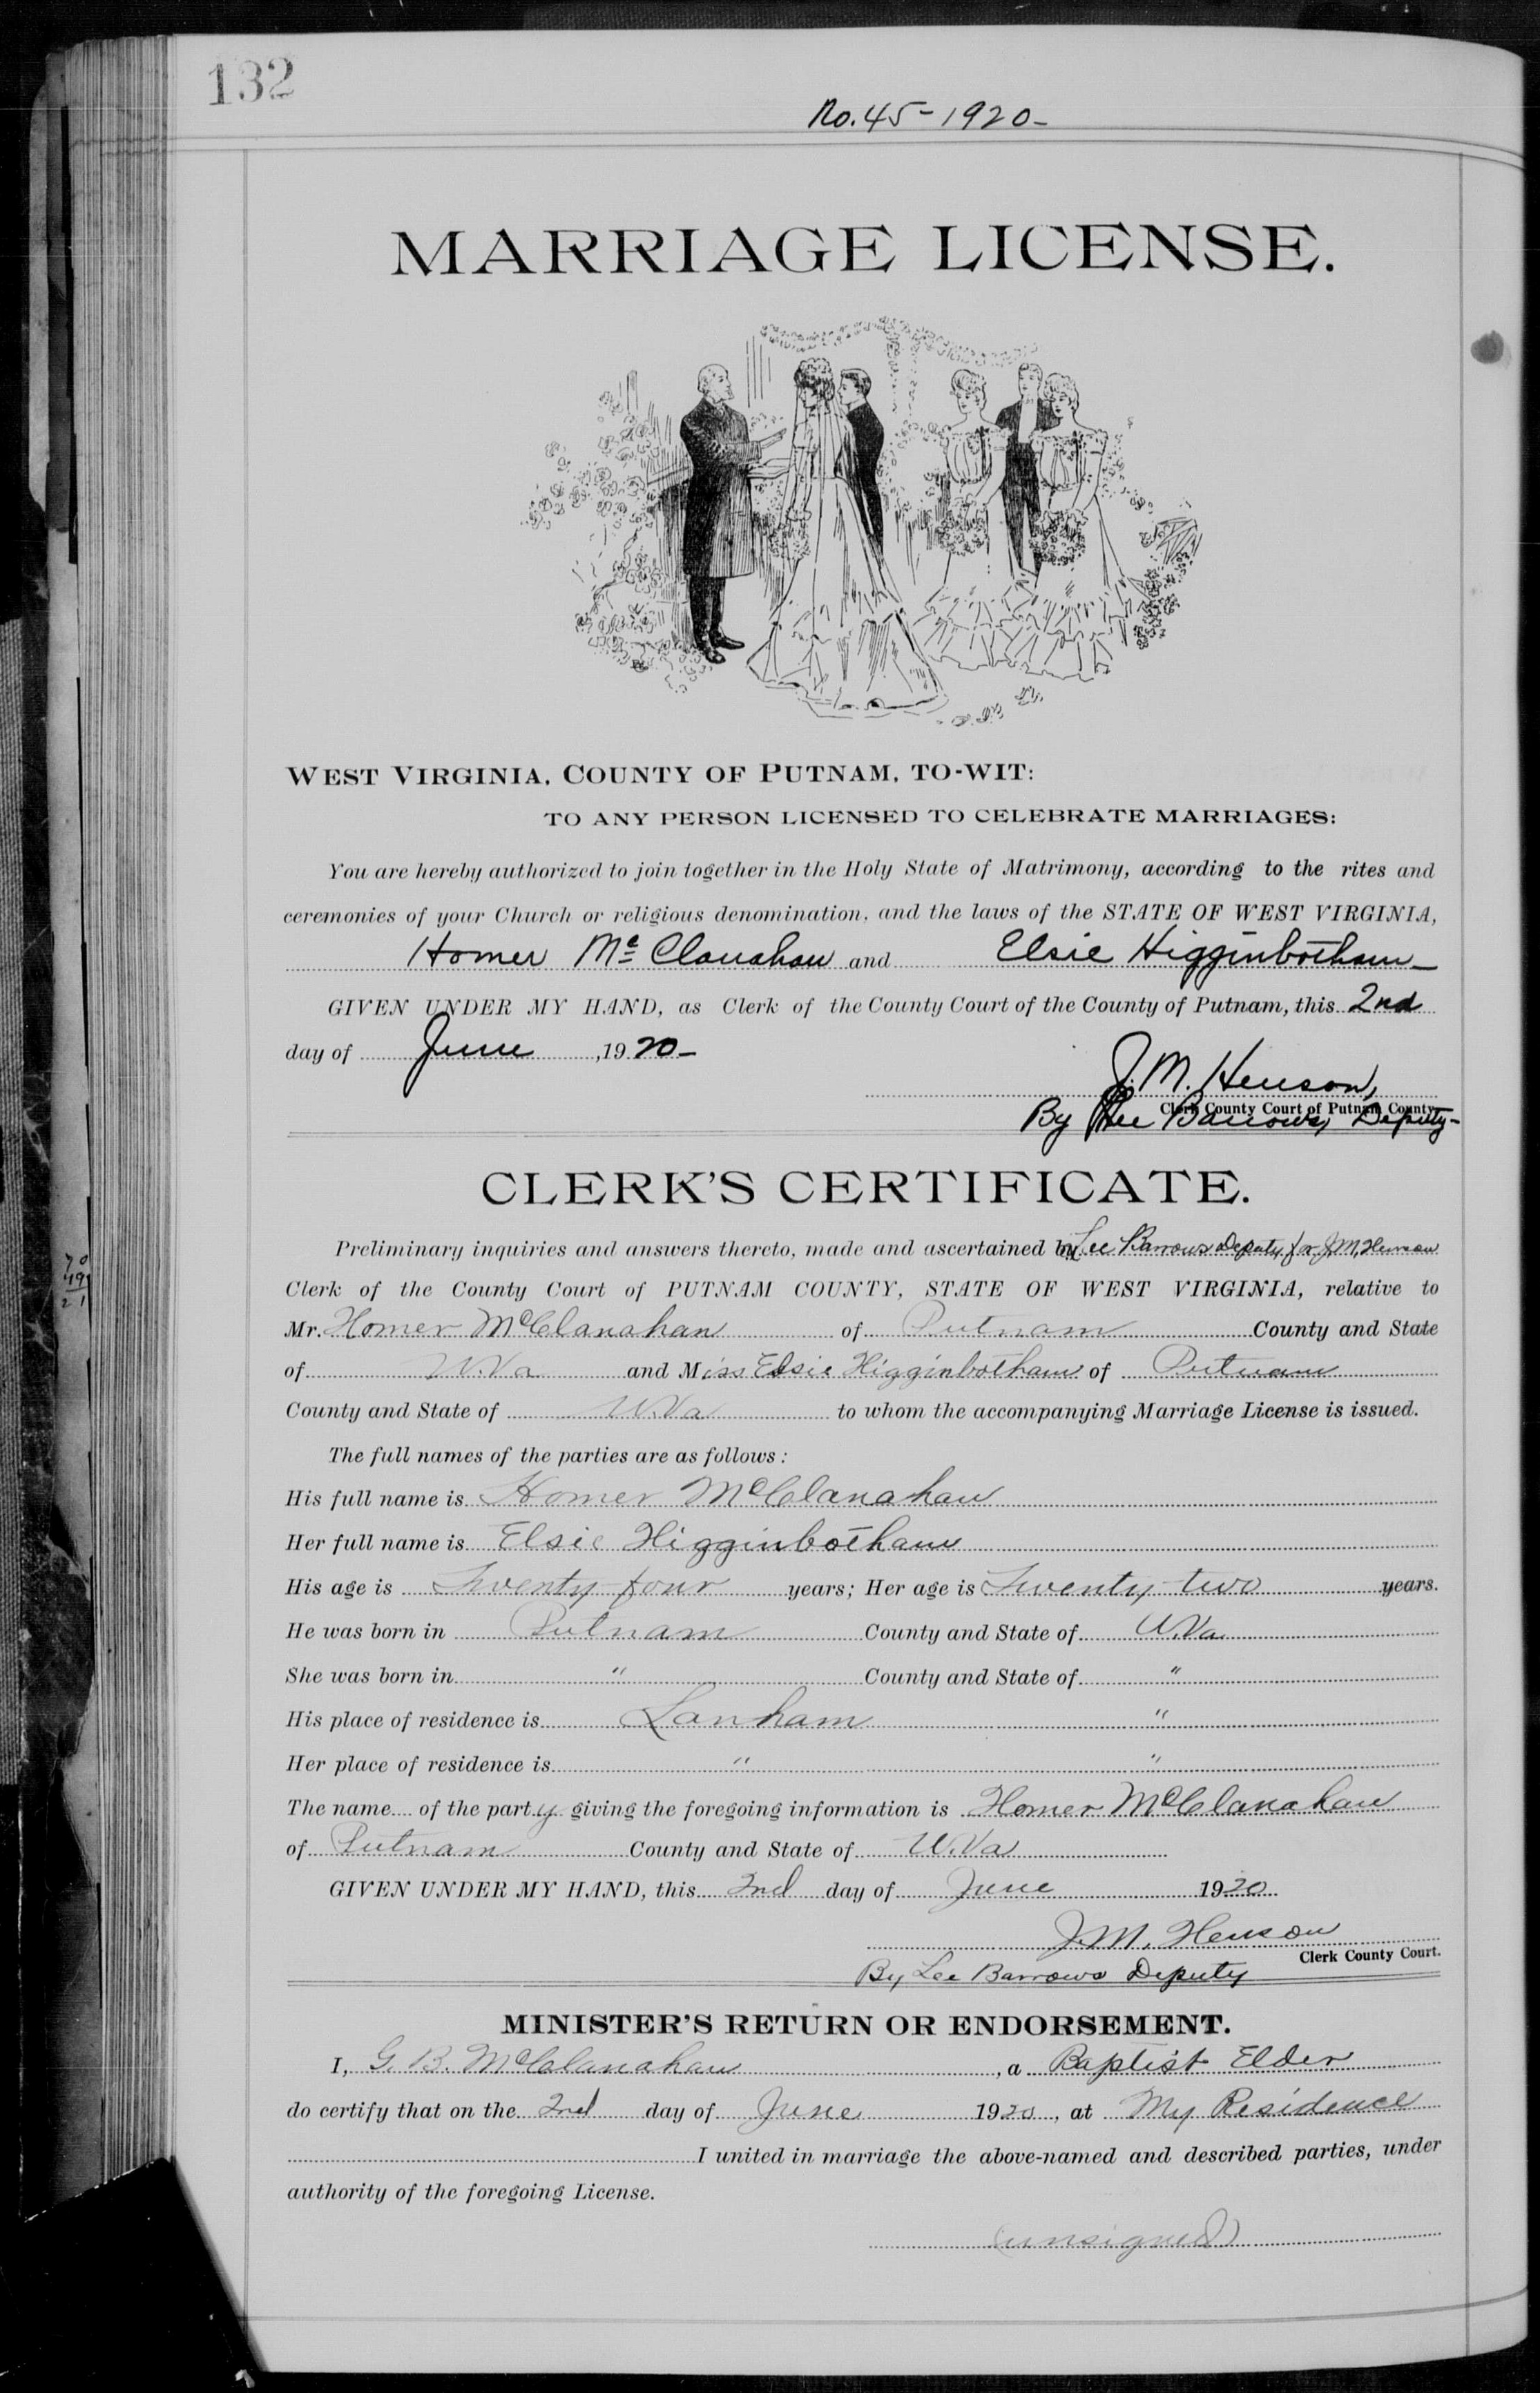 132
No. 45-1920-
MARRIAGE LICENSE.
WEST VIRGINIA, COUNTY OF PUTNAM, TO-WIT:
TO ANY PERSON LICENSED TO CELEBRATE MARRIAGES:
You are hereby authorized to join together in the Holy State of Matrimony, according to the rites and
ceremonies of your Church or religious denomination, and the laws of the STATE OF WEST VIRGINIA,
Homer McClanahan and Elsie Higginbotham-
GIVEN UNDER MY HAND, as Clerk of the County Court of the County of Putnam, this 2nd
day of June, 1920-
J. M. Henson,
Clerk County Court of Putnam County
By Lee Barrows, Deputy-
CLERK'S CERTIFICATE.
Preliminary inquiries and answers thereto, made and ascertained by Lee Barrows Deputy for J.M. Henson
Clerk of the County Court of PUTNAM COUNTY, STATE OF WEST VIRGINIA, relative to
Mr. Homer McClanahan of Putnam County and State
of W.Va and Miss Elsie Higginbotham of Putnam
County and State of W.Va to whom the accompanying Marriage License is issued.
The full names of the parties are as follows:
His full name is Homer McClanahan
Her full name is Elsie Higginbotham
His age is Twenty four years; Her age is Twenty two years.
He was born in Putnam County and State of W.Va.
She was born in " County and State of "
His place of residence is Lanham "
Her place of residence is " "
The name of the party giving the foregoing information is Homer McClanahan
of Putnam County and State of W.Va
GIVEN UNDER MY HAND, this 2nd day of June 1920
J.M. Henson
Clerk County Court.
By Lee Barrows Deputy
MINISTER'S RETURN OR ENDORSEMENT.
I, G. B. McClanahan, a Baptist Elder
do certify that on the 2nd day of June 1920, at My Residence
I united in marriage the above-named and described parties, under
authority of the foregoing License.
(unsigned)
70
49
21